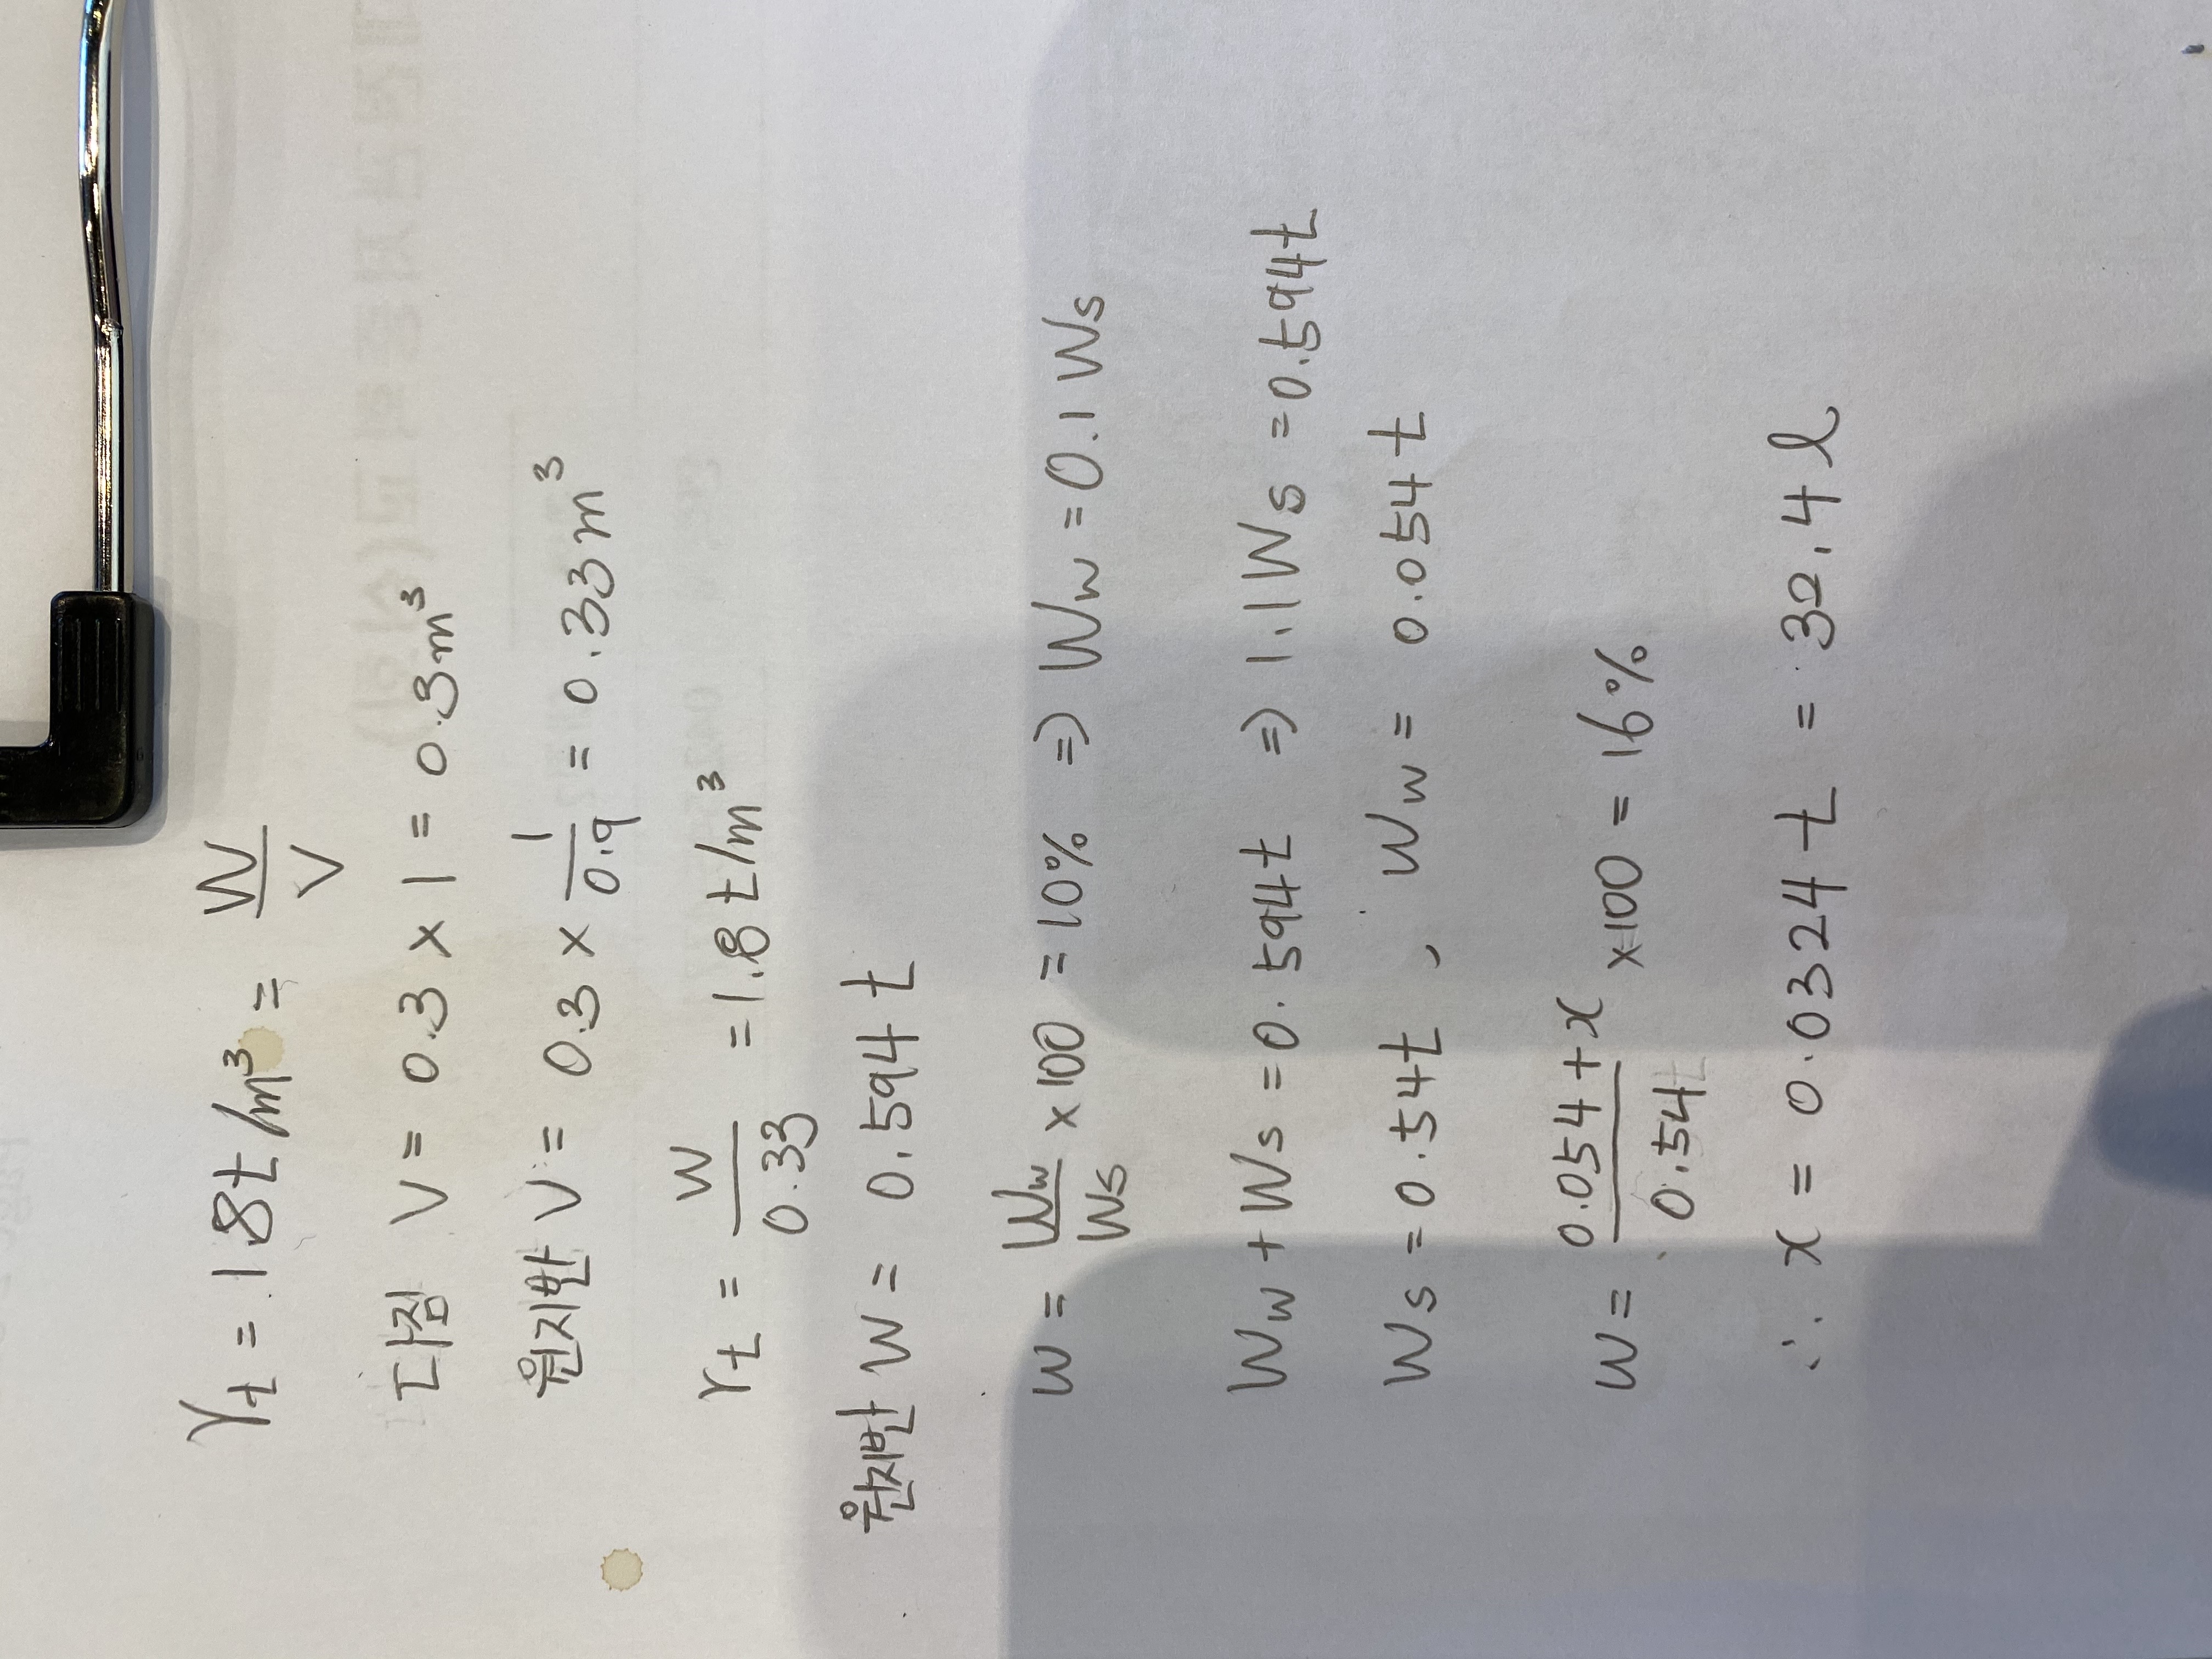 γt = 1.8t/m³ = W/V
다짐 V = 0.3 × 1 = 0.3m³
원지반 V = 0.3 × 1/0.9 = 0.33m³
γt = W/0.33 = 1.8t/m³
원지반 W = 0.594t
w = Ww/Ws × 100 = 10% ⇒ Ww = 0.1Ws
Ww + Ws = 0.594t ⇒ 1.1Ws = 0.594t
Ws = 0.54t, Ww = 0.054t
w = (0.054+x)/0.54 ×100 = 16%
∴ x = 0.0324t = 32.4l